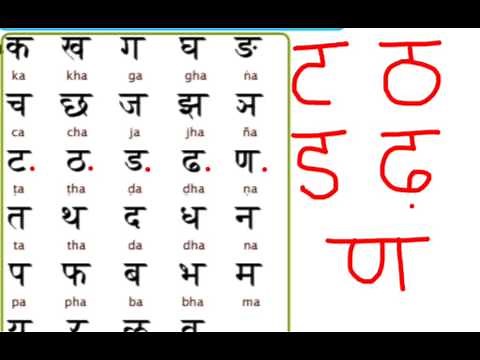 क ख ग घ ङ
ka kha ga gha ṅa
च छ ज झ ञ
ca cha ja jha ña
ट. ठ. ड. ढ. ण.
ṭa ṭha ḍa ḍha ṇa
त थ द ध न
ta tha da dha na
प फ ब भ म
pa pha ba bha ma
य र ळ व
ट ठ
ड ढ़
ण